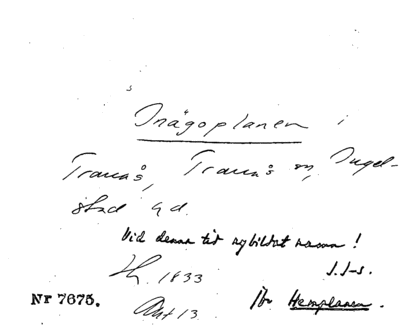 Inägoplanen i
Tranås, Tranås sn, Ingel-
stad hd.
Vid denna tid nybildat namn!
J.J-s.
1833
Nr 7675.
Akt 13
Hemplanen.